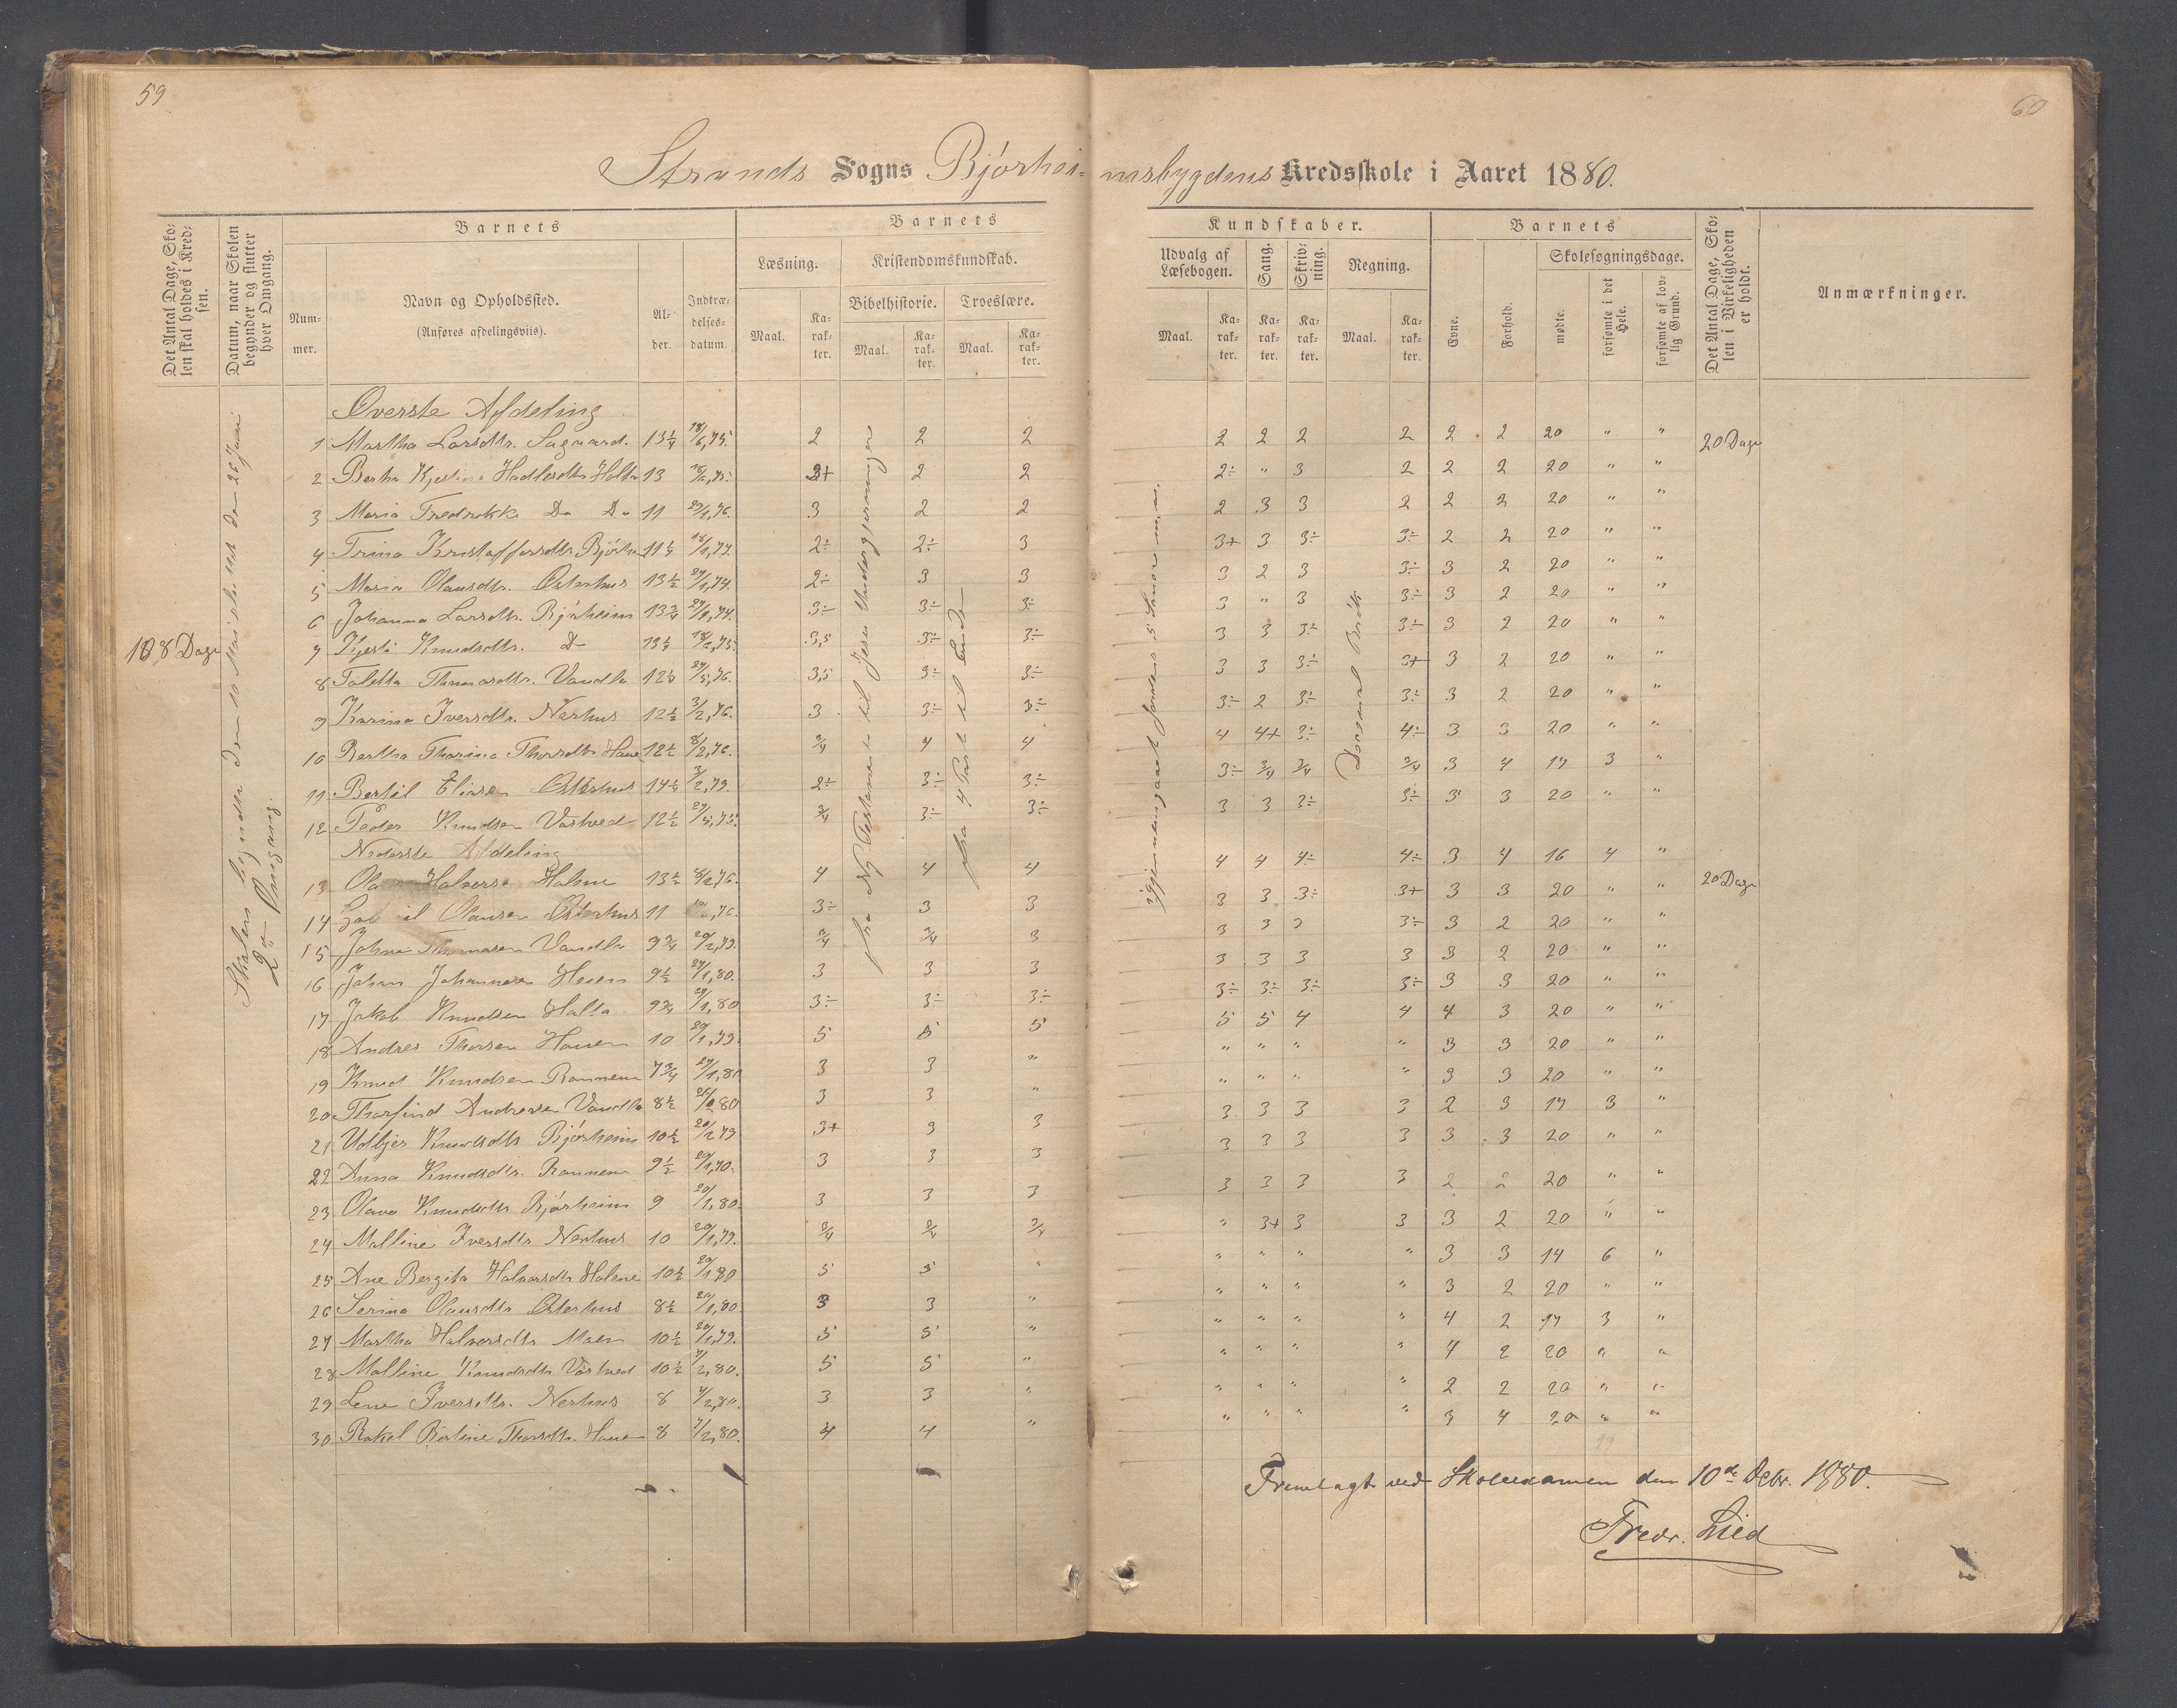 59
60
Strands Sogns Bjørhei- msbygdens Kredsskole i Aaret 1880.
Det Antal Dage, Skolen skal holdes i Kredsen.
Datum, naar Skolen begynder og slutter hver Omgang.
Barnets
Nummer.
Navn og Opholdssted.
(Anføres afdelingsviis).
Alder.
Indtrædelsesdatum.
Barnets
Læsning.
Maal.
Karakter.
Kristendomskundskab.
Bibelhistorie.
Maal.
Karakter.
Troeslære.
Maal.
Karakter.
Kundskaber.
Udvalg af Læsebogen.
Maal.
Karakter.
Sang.
Karakter.
Skrivning.
Karakter.
Regning.
Maal.
Karakter.
Barnets
Evne.
Forhold.
Skolesøgningsdage.
mødte.
forsømte i det Hele.
forsømte af lovlig Grund.
Det Antal Dage, Skolen i Virkeligheden er holdt.
Anmærkninger.
108 Dage
Skolen begyndte den 10 Mai sluttet den 26 Juni
2den Omgang.
fra Ny Testamente til Jesu Undergjerninger
fra 4 Part til Ende
Øverste Afdeling
1 Martha Larsdtr. Sagaard. 13¼ 18/6,75. 2 2 2 2 2 2 2 2 2 20 " " 20 Dage
2 Bertha Kjestine Hadlesdtr Holta 13 18/6,75. 2+ 2 2 2÷ " 3 2 2 2 20 " "
3 Maria Fredrikke Do Do 11 29/1,76. 3 2 2 2 3 3 2 2 2 20 " "
4 Trina Kristoffersdtr Bjørhe 11¼ 18/1,77. 2÷ 2÷ 3 3+ 3 3÷ 3÷ 2 2 20 " "
5 Maria Olausdtr. Østerhus 13½ 29/1,74. 2÷ 3 3 3 2 3 3÷ 3 2 20 " "
6 Johanna Larsdtr. Bjørheim 13¾ 3÷ 3÷ 3÷ 3 " 3 3÷ 3 2 20 " "
7 Kjesti Knudsdtr. Do 13¼ 18/6,75. 3,5 3÷ 3÷ 3 3 3÷ 3÷ 3 2 20 " "
8 Toletta Thomasdtr. Vandla 12¼ 29/5,76. 3,5 3÷ 3÷ 3 3 3÷ 3+ 3 2 20 " "
9 Karina Iversdtr. Nerhus 12½ 3/2,76. 3 3÷ 3÷ 3÷ 2 3÷ 3÷ 3 2 20 " "
10 Bertha Thorina Thorsdtr Haue 12½ 8/2,76. 3/4 4 4 4 4+ 3÷ 4÷ 3 3 20 " "
11 Bertil Eliasen Østerhus 14¼ 3/2,79. 2÷ 3÷ 3÷ 3÷ 3/4 3/4 3/4 3 4 17 3 "
12 Peder Knudsen Vastved 12½ 29/5,75. 3/4 3÷ 3÷ 3 3 3÷ 3÷ 3 3 20 " "
Nederste Afdeling
13 Halvorse Holme 13½ 8/2,76. 4 4 4 4 4 4÷ 4÷ 3 4 16 4 " 20 Dage
14 Olausen Østerhus 11 3÷ 3 3 3 3 3÷ 3+ 3 3 20 " "
15 Johan Thomasen Vandla 9¾ 20/2,79. 3/4 3/4 3 3 3 3 3÷ 3 2 20 " "
16 Johan Johannesen Heien 9½ 29/1,80. 3 3 3 3 3 3 3 3 2 20 " "
17 Jakob Knudsen Holta 9¾ 29/1,80 3÷ 3÷ 3÷ 3÷ 3÷ 3÷ 3÷ 3 3 20 " "
18 Andres Thorsen Hauen 10 29/1,79. 5 5 5 5 5 4 4 4 3 20 " "
19 Knud Knudsen Rannem 7¾ 29/1,80 3 3 " " " " " 3 3 20 " "
20 Thorfind Andreasen Vandla 8½ 3 3 " " " " " 3 3 20 " "
21 Udbjer Knudsdtr Bjørheim 10½ 20/2 79 3+ 3 3 3 3 3 3 2 3 17 3 "
22 Anna Knudsdtr. Rannem 9½ 3 3 3 3 3 3 3 3 3 20 " "
23 Olava Knudsdtr Bjørheim 9 20/1,80. 3 3 3 3 3 3 3 2 2 20 " "
24 Malline Iversdtr Nerhus 10 20/1,79. 3/4 3/4 3/4 " 3+ 3 3 3 2 20 " "
25 Ane Bergita Halvorsdtr Holme 10½ 20/1 80 5 5 " " " " " 3 3 14 6 "
26 Serina Olausdtr Østerhus 8½ 20/1,80. 3 3 " " " " " 3 2 20 " "
27 Martha Halvorsdtr Moen 10½ 20/1,79. 5 5 " " " " " 4 2 17 3 "
28 Malline Knudsdtr Vastved 10½ 7/2,80. 5 5 " " " " " 4 2 20 " "
29 Lene Iversdtr. Nerhus 8 7/2,80. 3 3 " " " " " 2 2 20 " "
30 Rakel Bertine Thorsdtr. Haue 8 7/2,80. 4 4 " " " " " 3 4 20 " "
19
Igjennemgaaet Jordens 5 Soner m.m.
Fremlagt ved Skoleexamen den 10de Octbr. 1880.
Fredr. Lied